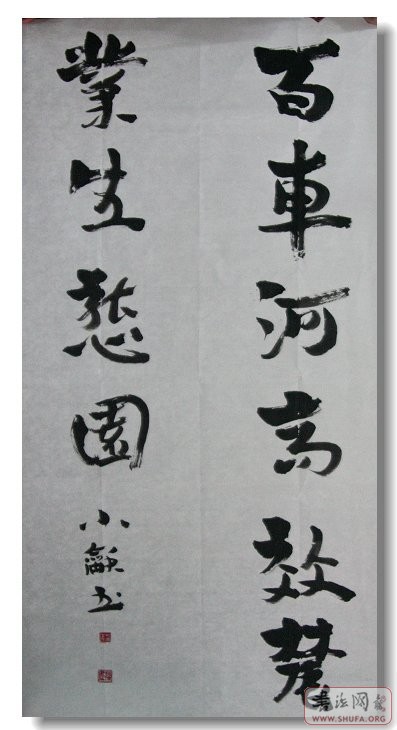 百車河高效農
業生態園
小龢书
書法网
WWW.SHUFA.ORG